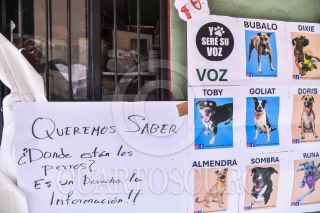 YO
SERÉ SU
VOZ
VOZ
BUBALO
DIXIE
TOBY
GOLIAT
DORIS
ALMENDRA
SOMBRA
RUNA
QUEREMOS SABER
¿Donde están los
perros?
Es un Derecho la
Información!!